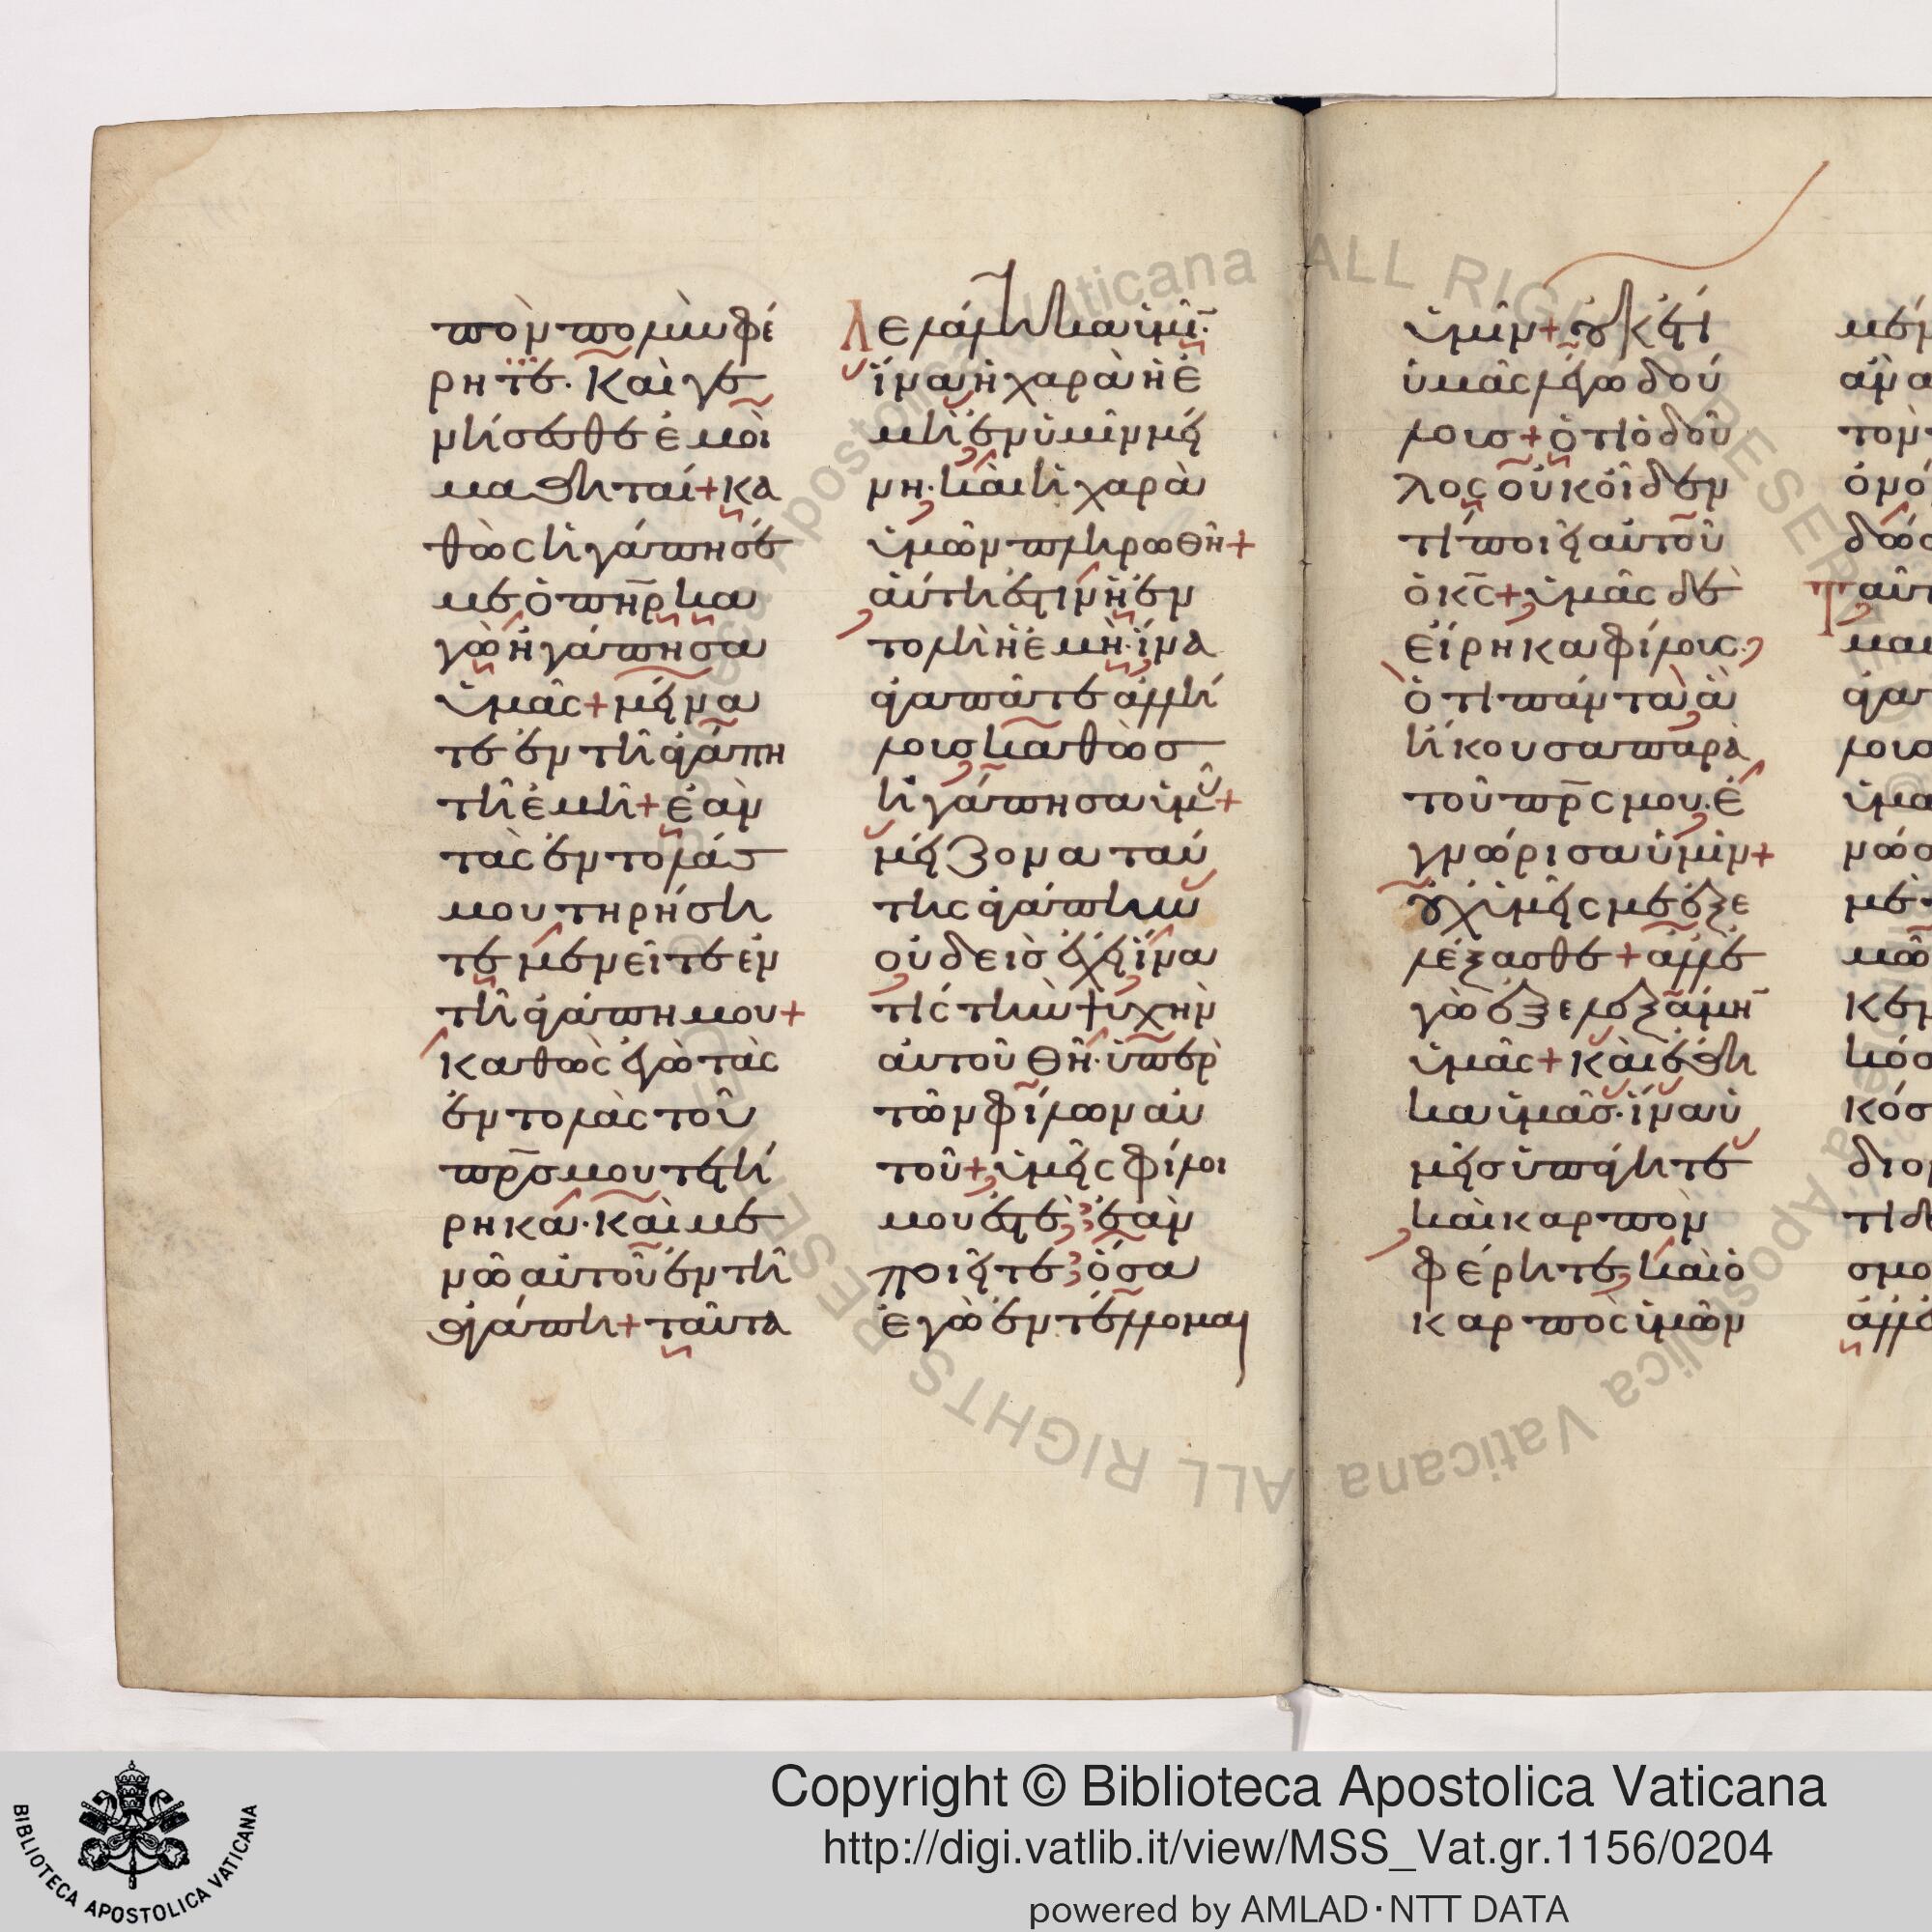 πὸν πολὺν φέ
ρητε· καὶ γε
νήσεσθε ἐμοὶ
μαθηταί+ κα
θὼς ἠγάπησέ
με ὁ πη̅ρ κἀ
γὼ ἠγάπησα
ὑμᾶς+ μείνα
τε ἐν τῆ ἀγάπη
τῆ ἐμῆ+ ἐὰν
τὰς ἐντολάς
μου τηρήση
τε μενεῖτε ἐν
τῆ ἀγάπη μου+
καθὼς ἐγὼ τὰς
ἐντολὰς τοῦ
πρ̅ς μου τετή
ρηκα· καὶ μέ
νω αὐτοῦ ἐν τῆ
ἀγάπη+ ταῦτα
λελάληκα ὑμῖ̅·
ἵνα ἡ χαρὰ ἡ ἐ
μὴ ἐν ὑμῖν μεί
νη· καὶ ἡ χαρὰ
ὑμῶν πληρωθῆ+
αὕτη ἐστὶν ἡ ἐν
τολὴ ἡ ἐμὴ· ἵνα
ἀγαπᾶτε ἀλλή
λους καθὼς
ἠγάπησα ὑμᾶς+
μείζονα ταύ
της ἀγάπην
οὐδεὶς ἔχει ἵνα
τίς τὴν ψυχὴν
αὐτοῦ θῆ· ὑπὲρ
τῶν φίλων αὐ
τοῦ+ ὑμεῖς φίλοι
μου ἐστέ· ἐὰν
ποιεῖτε ὅσα
ἐγὼ ἐντέλλομαι
ὑμῖν+ οὐκέτι
ὑμᾶς λέγω δού
λους+ ὅτι ὁ δοῦ
λος οὐκ οἶδεν
τί ποιεῖ αὐτοῦ
ὁ κ̅ς+ ὑμᾶς δὲ
εἴρηκα φίλους·
ὅτι πάντα ἃ
ἤκουσα παρὰ
τοῦ πρ̅ς μου· ἐ
γνώρισα ὑμῖν+
οὐχ ὑμεῖς με ἐξε
λέξασθε+ ἀλλ' ἐ
γὼ ἐξελεξάμη̅
ὑμᾶς+ καὶ ἔθη
κα ὑμᾶς· ἵνα ὑ
μεῖς ὑπάγητε
καὶ καρπὸν
φέρητε· καὶ ὁ
καρπὸς ὑμῶν
Copyright © Biblioteca Apostolica Vaticana
http://digi.vatlib.it/view/MSS_Vat.gr.1156/0204
powered by AMLAD·NTT DATA
BIBLIOTECA APOSTOLICA VATICANA